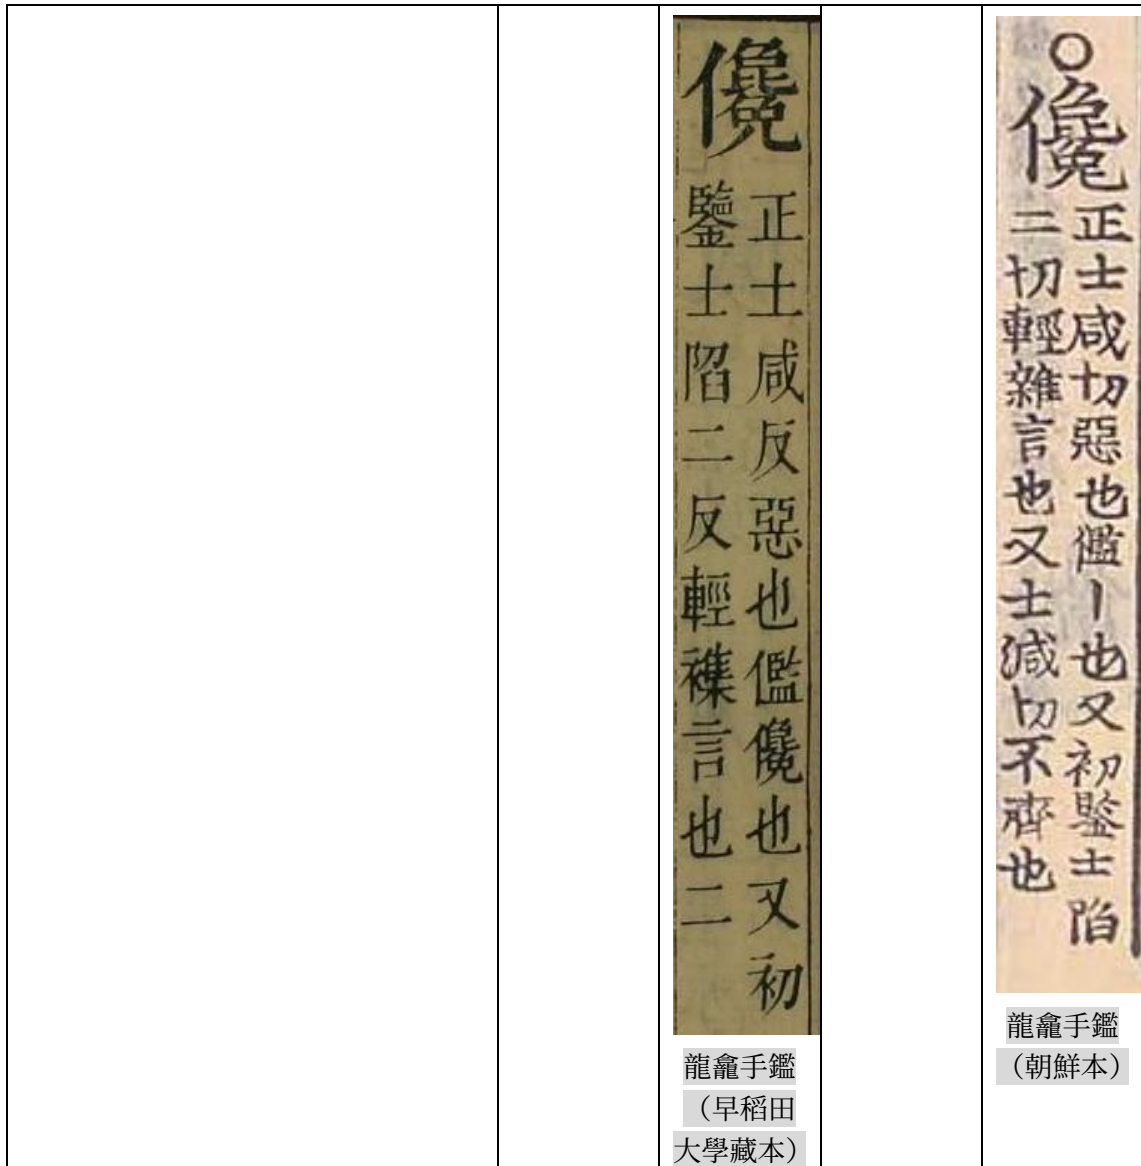 儳
正土咸反惡也儖儳也又初
鑒士陷二反輕襍言也二
龍龕手鑑
（早稻田
大學藏本）
○儳
正士咸切惡也儖丨也又初鑒士陷
二切輕雜言也又士减切不齊也
龍龕手鑑
（朝鮮本）